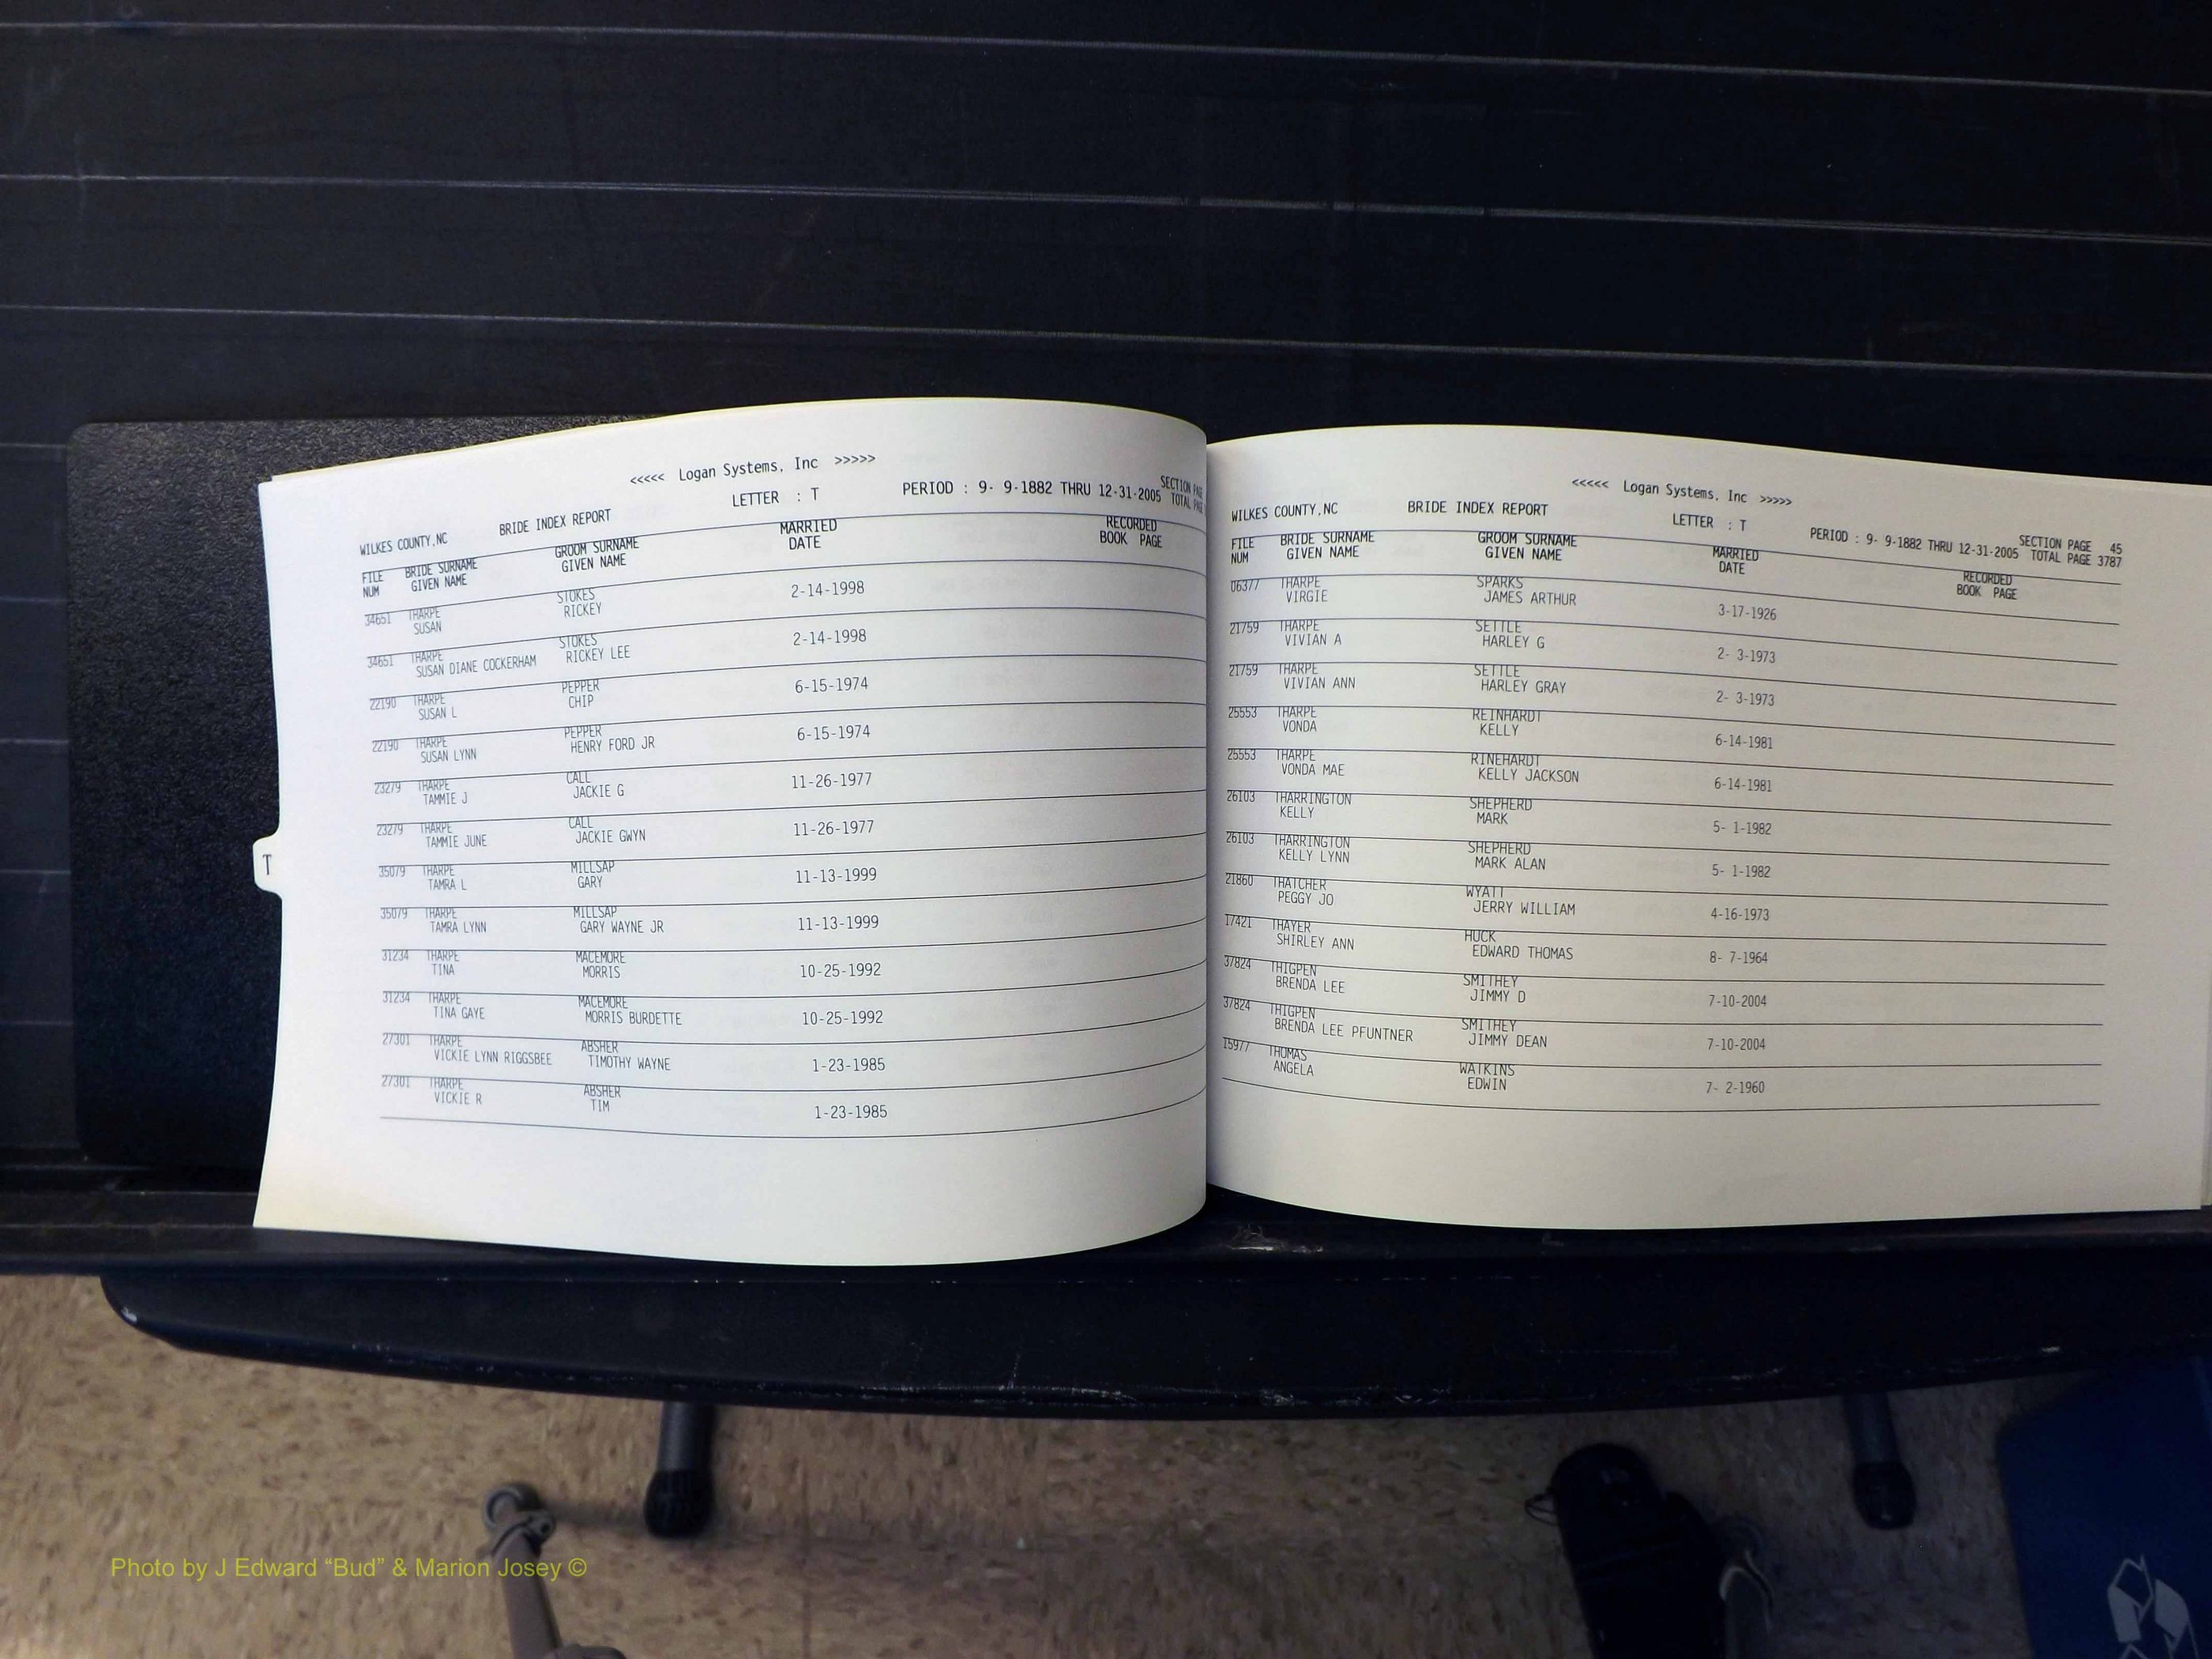 <<<<< Logan Systems, Inc >>>>>
WILKES COUNTY,NC BRIDE INDEX REPORT LETTER : T PERIOD : 9- 9-1882 THRU 12-31-2005 SECTION PAGE
TOTAL PAGE
FILE BRIDE SURNAME GROOM SURNAME MARRIED RECORDED
NUM GIVEN NAME GIVEN NAME DATE BOOK PAGE
34651 THARPE STOKES
SUSAN RICKEY 2-14-1998
34651 THARPE STOKES
SUSAN DIANE COCKERHAM RICKEY LEE 2-14-1998
22190 THARPE PEPPER
SUSAN L CHIP 6-15-1974
22190 THARPE PEPPER
SUSAN LYNN HENRY FORD JR 6-15-1974
23279 THARPE CALL
TAMMIE J JACKIE G 11-26-1977
23279 THARPE CALL
TAMMIE JUNE JACKIE GWYN 11-26-1977
35079 THARPE MILLSAP
TAMRA L GARY 11-13-1999
35079 THARPE MILLSAP
TAMRA LYNN GARY WAYNE JR 11-13-1999
31234 THARPE MACEMORE
TINA MORRIS 10-25-1992
31234 THARPE MACEMORE
TINA GAYE MORRIS BURDETTE 10-25-1992
27301 THARPE ABSHER
VICKIE LYNN RIGGSBEE TIMOTHY WAYNE 1-23-1985
27301 THARPE ABSHER
VICKIE R TIM 1-23-1985
T
<<<<< Logan Systems, Inc >>>>>
WILKES COUNTY,NC BRIDE INDEX REPORT LETTER : T SECTION PAGE 45
PERIOD : 9- 9-1882 THRU 12-31-2005 TOTAL PAGE 3787
FILE BRIDE SURNAME GROOM SURNAME MARRIED RECORDED
NUM GIVEN NAME GIVEN NAME DATE BOOK PAGE
06377 THARPE SPARKS
VIRGIE JAMES ARTHUR 3-17-1926
21759 THARPE SETTLE
VIVIAN A HARLEY G 2- 3-1973
21759 THARPE SETTLE
VIVIAN ANN HARLEY GRAY 2- 3-1973
25553 THARPE REINHARDT
VONDA KELLY 6-14-1981
25553 THARPE RINEHARDT
VONDA MAE KELLY JACKSON 6-14-1981
26103 THARRINGTON SHEPHERD
KELLY MARK 5- 1-1982
26103 THARRINGTON SHEPHERD
KELLY LYNN MARK ALAN 5- 1-1982
21860 THATCHER WYATT
PEGGY JO JERRY WILLIAM 4-16-1973
17421 THAYER HUCK
SHIRLEY ANN EDWARD THOMAS 8- 7-1964
37824 THIGPEN SMITHEY
BRENDA LEE JIMMY D 7-10-2004
37824 THIGPEN SMITHEY
BRENDA LEE PFUNTNER JIMMY DEAN 7-10-2004
15977 THOMAS WATKINS
ANGELA EDWIN 7- 2-1960
Photo by J Edward “Bud” & Marion Josey ©